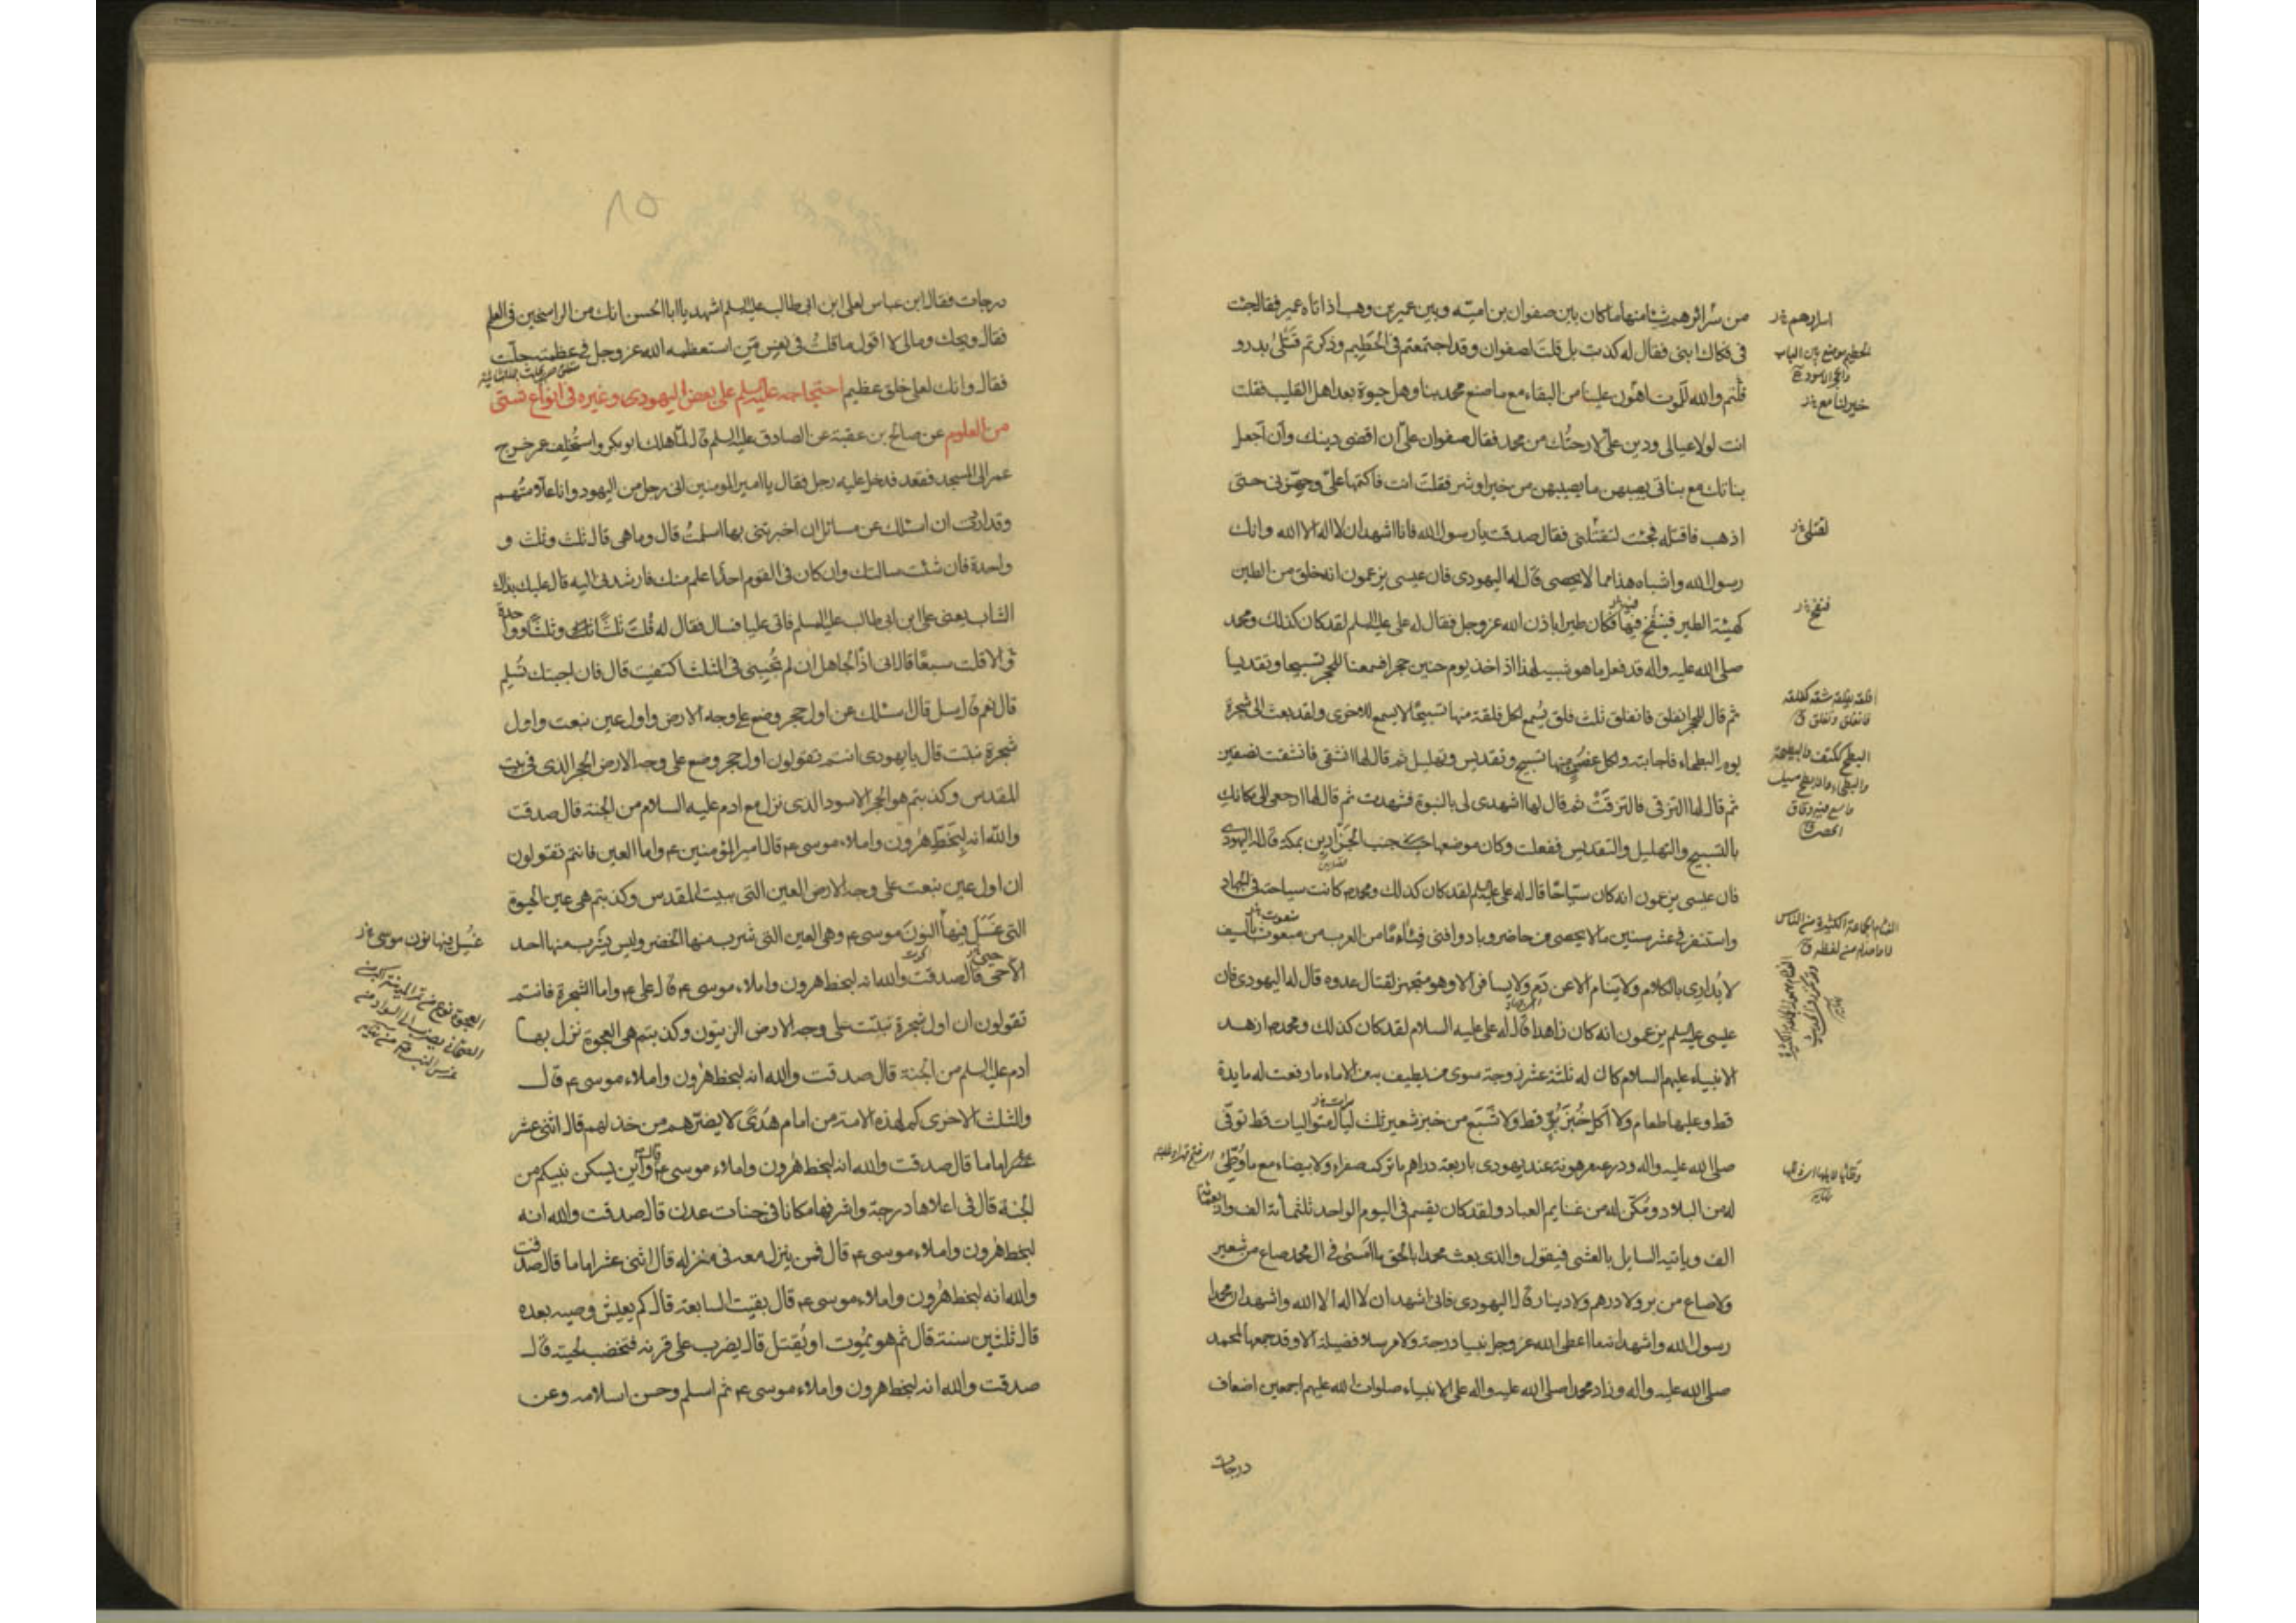 من سرائرهم شيئا منها ما كان بين صفوان بن اميّه وبين عمير بن وهب اذ اتاه عمير فقال جئت
في فكاك ابنى فقال له كذبت بل قلت لصفوان وقد اجتمعتم فى الحَطِيم وذكرتم قَتْلىٰ بدر و
قلتم والله للموت اهون علينا من البقاء مع ما صنع محمد بنا وهل حيوة بعد اهل القليب فقلت
انت لولا عيالى ودين علىّ لارحتُك من محمد فقال صفوان علىّ ان اقضى دينك وأن أجعل
بناتك مع بناتى يصيبهن ما يصيبهن من خير او شر فقلتَ انت فاكتمها علىّ وجهّزنى حتى
اذهب فاقتله فجئت لتقتُلنى فقال صدقت يا رسول الله فانا اشهد ان لا اله الا الله وانك
رسول الله واشباه هذا مما لا يحصى قال له اليهودى فان عيسى يزعمون انه خلق من الطين
كهيئة الطير فينفخ فيها فكان طيرا باذن الله عز وجل فقال له على عليه السلم لقد كان كذلك ومحمد
صلى الله عليه واله قد فعل ما هو شبيه لهذا اذ اخذ يوم حنين حجرا فسمعنا للحجر تسبيحا وتقديسا
ثم قال للحجر انفلق فانفلق ثلث فلق يُسمع لكل فلقة منها تسبيحًا لا يسمع للاخرى ولقد بعث الى شجرة
يوم البطحاء فاجابته ولكل غصنٍ منها تسبيح وتقديس وتهليل ثم قال لها انشقى فانشقت نصفين
ثم قال لها التزقى فالتزقَتْ ثم قال لها اشهدى لى بالنبوة فشهدت ثم قال لها ارجعى الى مكانكِ
بالتسبيح والتهليل والتقديس ففعلت وكان موضعها جنب الجزّارين بمكة قال له اليهودى
فان عيسى يزعمون انه كان سيّاحًا قال له على عليه السلم لقد كان كذلك ومحمد ص كانت سياحته فى الجهاد
واستنفر فى عشر سنين ما لا يحصى من حاضر وباد وافنى فِئامًا من العرب من منعوت بالسيف
لا يُدارى بالكلام ولا ينام الا عن دَمٍ ولا يسافر الا وهو متجهز لقتال عدوه قال له اليهودى فان
عيسى عليه السلم يزعمون انه كان زاهدا قال له على عليه السلام لقد كان كذلك ومحمد ص ازهد
الانبياء عليهم السلام كان له ثلثة عشر زوجة سوى من يطيف به من الاماء ما رفعت له مايدة
قط وعليها طعام ولا أكل خُبزَ بُرٍّ قط ولا شَبَع من خبز شعير ثلث ليال متواليات قط توفّى
صلى الله عليه واله ودرعه مرهونة عند يهودى باربعة دراهم ما ترك صفراء ولا بيضاء مع ما وُطِّئ
له من البلاد ومُكّن له من غنايم العباد ولقد كان يقسم فى اليوم الواحد ثلثمائة الف واربعمائة
الف وياتيه السايل بالعشى فيقول والذى بعث محمدا بالحق ما امسىٰ فى ال محمد صاع من شعير
ولا صاع من بر ولا درهم ولا دينار قال اليهودى فانى اشهد ان لا اله الا الله واشهد ان محمدا
رسول الله واشهد انه ما اعطى الله عز وجل نبيا درجة ولا مرسلا فضيلة الا وقد جمعها لمحمد
صلى الله عليه واله وزاد محمدا صلى الله عليه واله على الانبياء صلوات الله عليهم اجمعين اضعاف
درجات
اسرارهم
الحطيم موضع بين الباب
والحجر الاسود
خير لنا مع
لقتلى
فنفخ
فلقه يفلقه شقه كفلقه
فانفلق وتفلق ق
البطح ككتف والبطيحة
والبطحاء والابطح مسيل
واسع فيه دقاق
الحصى ق
الفئام الجماعة الكثيرة من الناس
لا واحد له من لفظه ق
٨٥
درجات فقال ابن عباس لعلى ابن ابى طالب عليه السلم اشهد يا ابا الحسن انك من الراسخين فى العلم
فقال ويحك ومالى لا اقول ما قلتُ فى نفس من استعظمه الله عز وجل فى عظمته جلّت
فقال وانك لعلى خلق عظيم احتجاجه عليه السلم على بعض اليهودى وغيره فى انواع شتى
من العلوم عن صالح بن عقبة عن الصادق عليه السلم قال لما هلك ابو بكر واستُخلِف عمر خرج
عمر الى المسجد فقعد فدخل عليه رجل فقال يا امير المومنين انى رجل من اليهود وانا علّامتُهم
وقد اردت ان اسئلك عن مسائل ان اخبرتنى بها اسلمتُ قال وما هى قال ثلث وثلث و
واحدة فان شئت سالتك وان كان فى القوم احدٌ اعلم منك فارشدنى اليه قال عليك بذلك
الشاب يعنى على ابن ابى طالب عليه السلم فاتى عليا فسال فقال له قُلتَ ثلثًا وثلثًا وواحدة
و الا قلت سبعًا قال انى اذًا لجاهل ان لم تُجِبنى فى الثلث اكتفيت قال فان اجبتك تُسلِم
قال نعم قال سل قال اسئلك عن اول حجر وضع على وجه الارض واول عين نبعت واول
شجرة نبتت قال يا يهودى انتم تقولون اول حجر وضع على وجه الارض الحجر الذى فى بيت
المقدس وكذبتم هو الحجر الاسود الذى نزل مع ادم عليه السلام من الجنة قال صدقت
والله انه لبخطّ هرون واملاء موسى ع قال امير المؤمنين ع واما العين فانتم تقولون
ان اول عين نبعت على وجه الارض العين التى ببيت المقدس وكذبتم هى عين الحيوة
التى غَسَلَ فيها النونَ موسى ع وهى العين التى شرب منها الخضر وليس يشرب منها احد
الّا حىّ قال صدقت والله انه لبخط هرون واملاء موسى ع قال على ع واما الشجرة فانتم
تقولون ان اول شجرة نبتت على وجه الارض الزيتون وكذبتم هى العجوة نزل بها
ادم عليه السلم من الجنة قال صدقت والله انه لبخط هرون واملاء موسى ع قال
والثلث الاخرى كم لهذه الامة من امام هُدًى لا يضرّهم من خذلهم قال اثنى عشر
اماما قال صدقت والله انه لبخط هرون واملاء موسى ع قال واين يسكن نبيكم من
الجنة قال فى اعلاها درجة واشرفها مكانا فى جنات عدن قال صدقت والله انه
لبخط هرون واملاء موسى ع قال فمن ينزل معه فى منزله قال اثنى عشر اماما قال صدقت
والله انه لبخط هرون واملاء موسى ع قال بقيت السابعة قال كم يعيش وصيه بعده
قال ثلثين سنة قال ثم هو يموت او يُقتل قال يضرب على قرنه فتخضب لحيته قال
صدقت والله انه لبخط هرون واملاء موسى ع ثم اسلم وحسن اسلامه وعن
غُسِل فيها نون موسى
العجوة نوع من تمر المدينة اكبر من
الصيحانى يضرب الى السواد من
غرس النبى